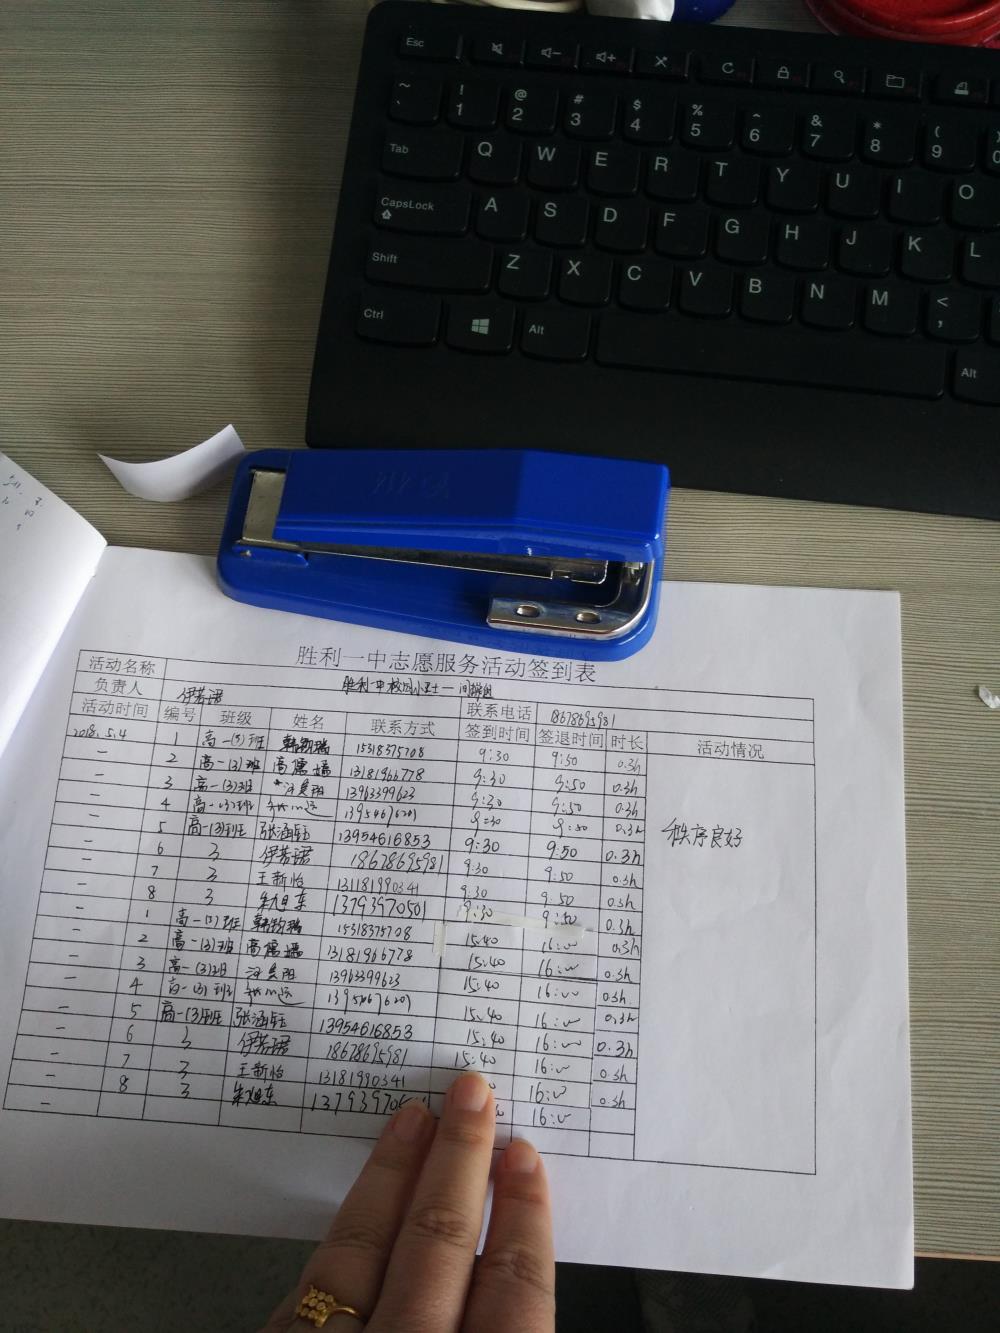 Esc
~ ` ! 1 @ 2 # 3 $ 4 % 5 ^ 6 & 7 * 8 ( 9 ) 0
Tab Q W E R T Y U I O
CapsLock A S D F G H J K L
Shift Z X C V B N M < ,
Ctrl Alt Alt
胜利一中志愿服务活动签到表
活动名称 胜利一中校园小卫士—间操组
负责人 伊若珺 联系电话 18678695981
活动时间 编号 班级 姓名 联系方式 签到时间 签退时间 时长 活动情况
2018.5.4 1 高一(3)班 15318375708 9:30 9:50 0.3h 秩序良好
— 2 高一(3)班 13181966778 9:30 9:50 0.3h
— 3 高一(3)班 13963399623 9:30 9:50 0.3h
— 4 高一(3)班 9:30 9:50 0.3h
— 5 高一(3)班 张涵钰 13954616853 9:30 9:50 0.3h
— 6 3 伊若珺 18678695981 9:30 9:50 0.3h
— 7 3 王新怡 13181990341 9:30 9:50 0.3h
— 8 3 朱旭东 13793970501 9:30 9:50 0.3h
— 1 高一(3)班 15318375708 15:40 16:00 0.3h
— 2 高一(3)班 13181966778 15:40 16:00 0.3h
— 3 高一(3)班 13963399623 15:40 16:00 0.3h
— 4 高一(3)班 15:40 16:00 0.3h
— 5 高一(3)班 张涵钰 13954616853 15:40 16:00 0.3h
— 6 3 伊若珺 18678695981 15:40 16:00 0.3h
— 7 3 王新怡 13181990341 16:00 0.3h
— 8 3 朱旭东 16:00